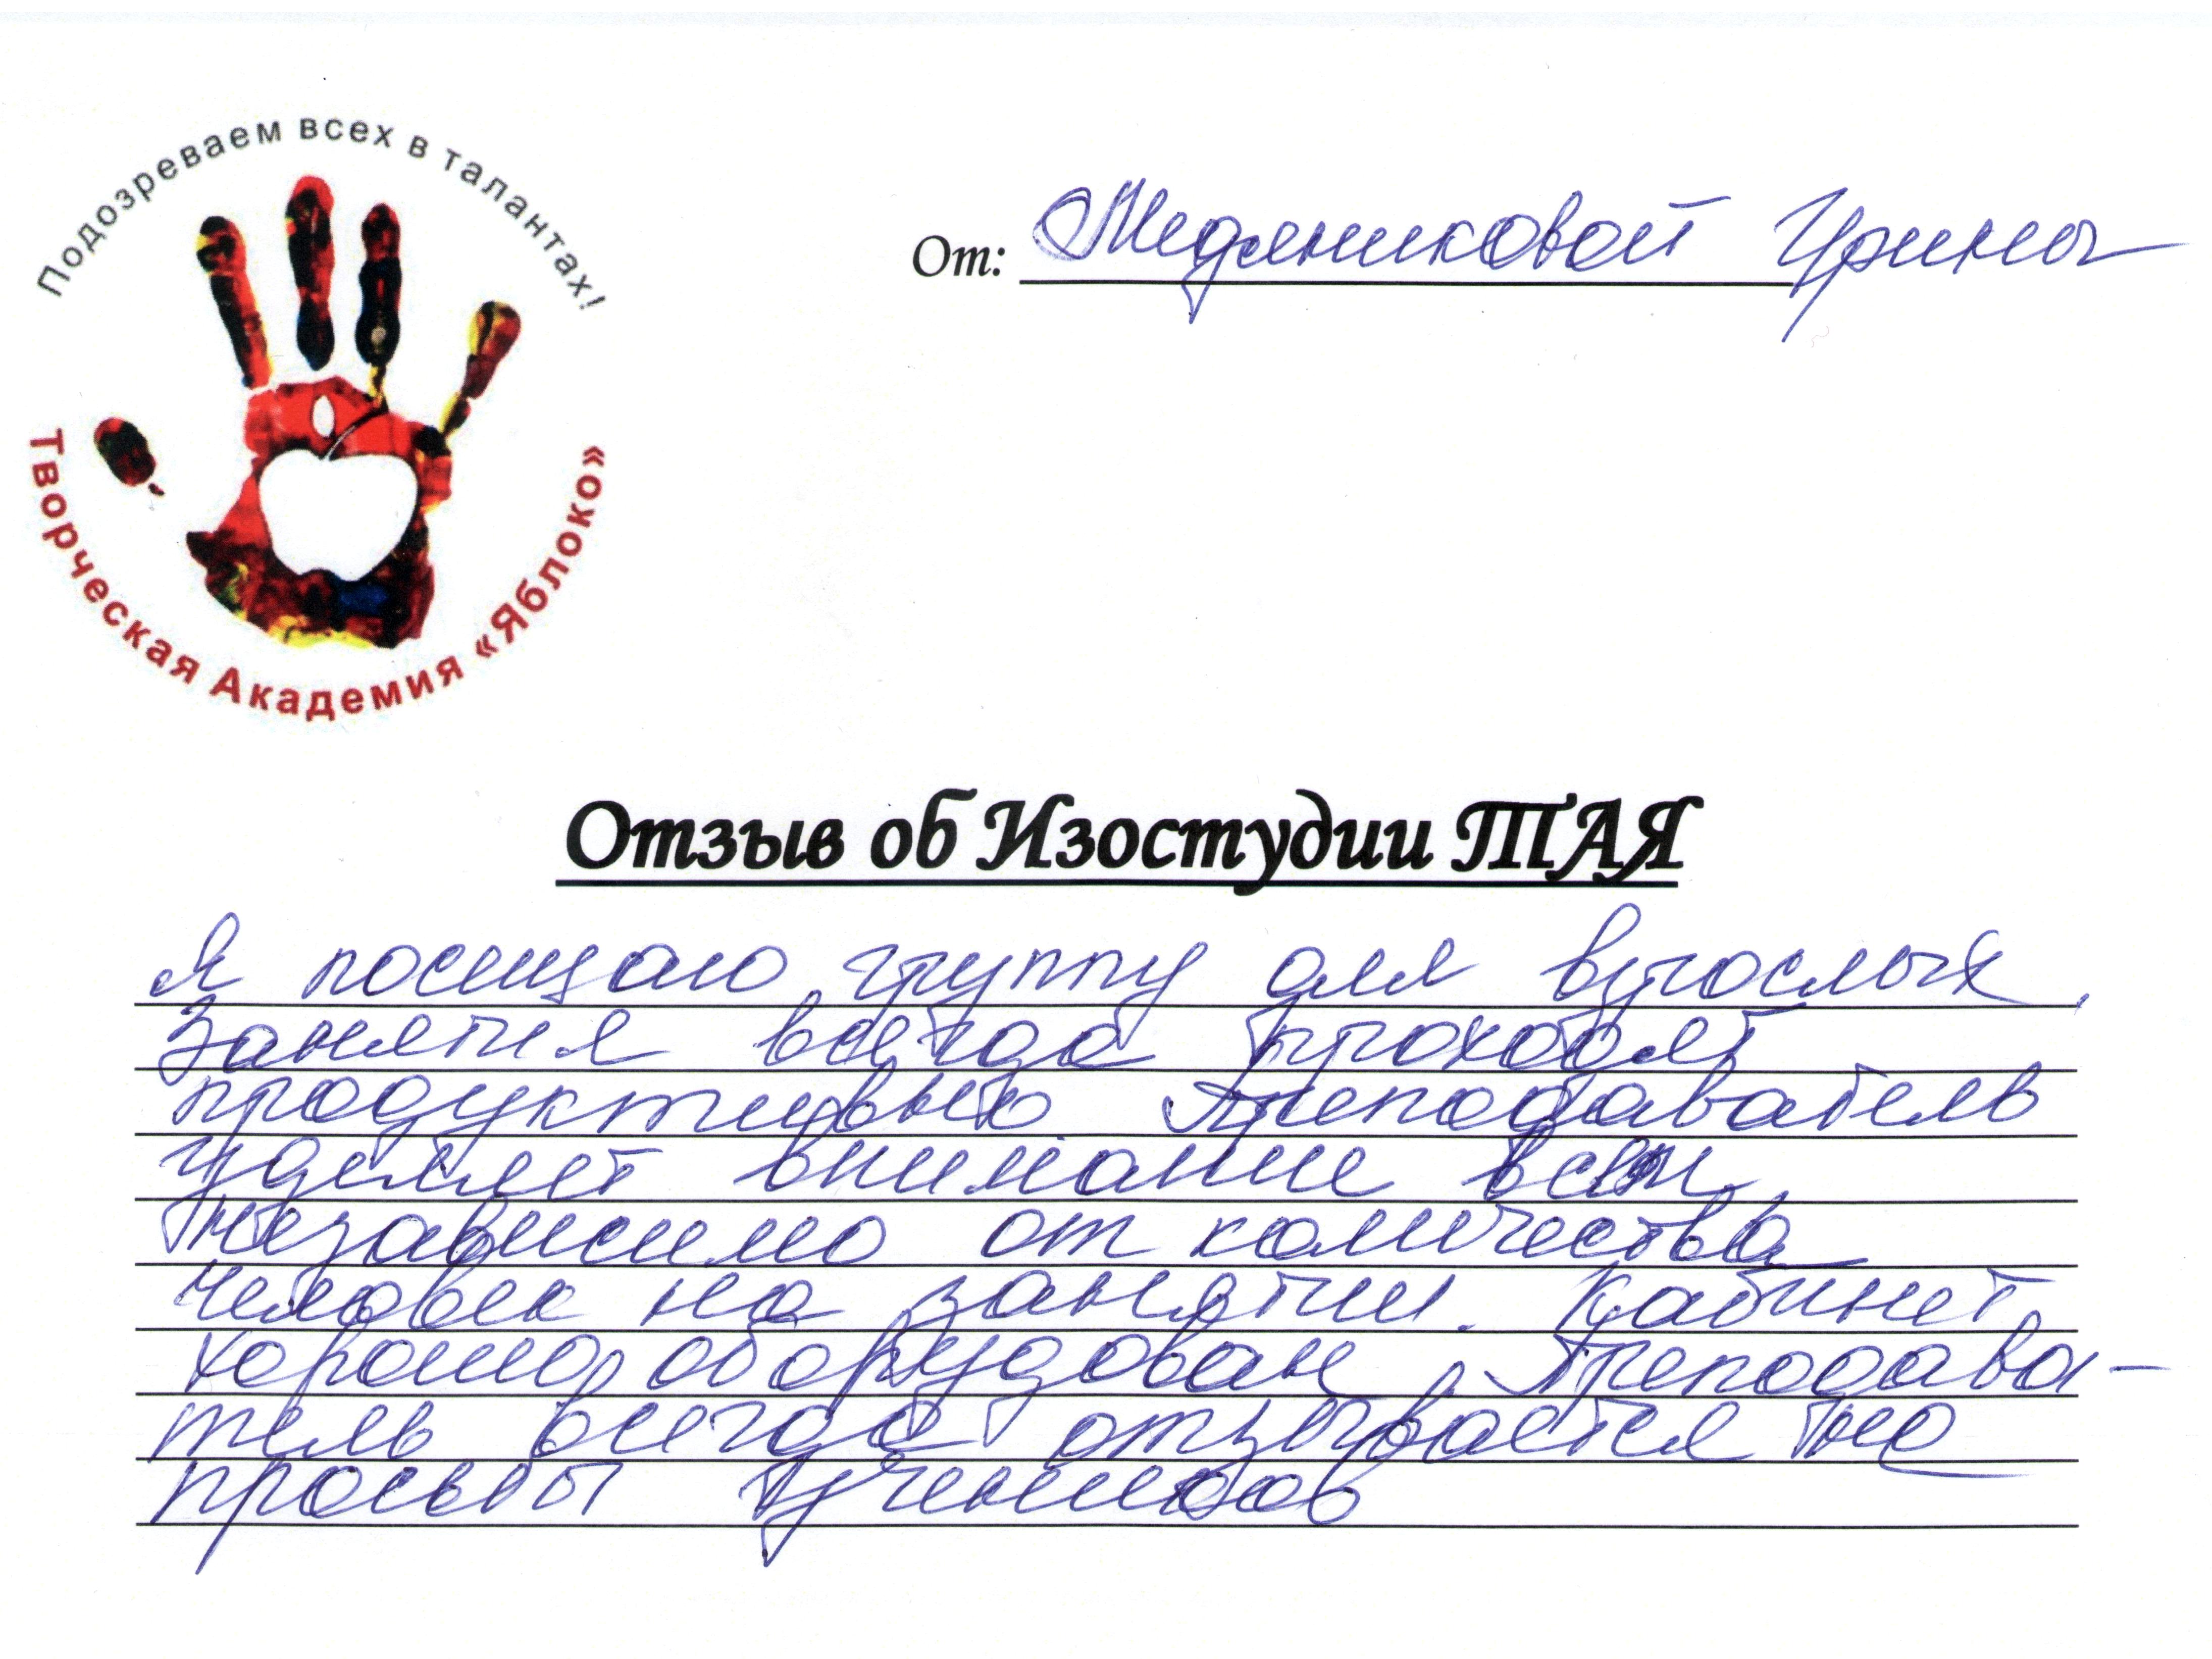 Подозреваем всех в талантах!
Творческая Академия «Яблоко»
От: Медяниковой Ирины
Отзыв об Изостудии ТАЯ
Я посещаю группу для взрослых,
Занятия всегда проходят
продуктивно. Преподаватель
уделяет внимание всем,
независимо от количества
человек на занятии. Кабинет
хорошо оборудован. Преподава-
тель всегда отзывается на
просьбы учеников